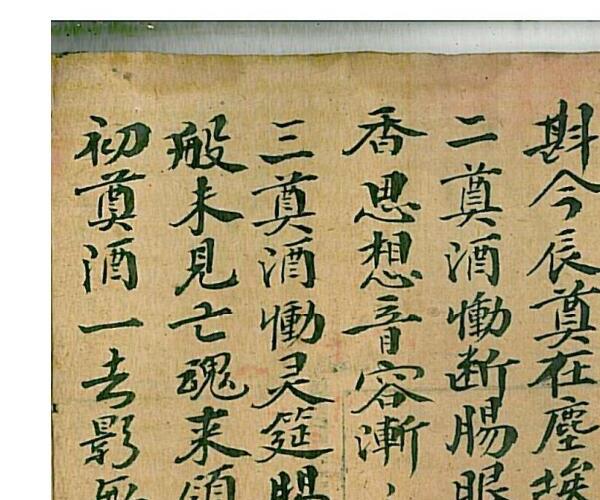 斟今辰奠在塵埃
二奠酒慟断腸眼
香思想音容漸
三奠酒慟灵筵賜
般未見亡魂来領
初奠酒一去影